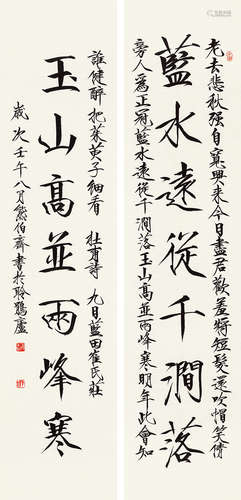 老去悲秋强自寬興來今日盡君歡羞將短髮還吹帽笑倩
藍水遠從千澗落
旁人爲正冠藍水遠從千澗落玉山髙並兩峰寒明年此會知
誰健醉把茱萸子細看 杜甫詩 九日藍田崔氏莊
玉山髙並兩峰寒
歲次壬午八月熊伯齊書於聆鶴廬